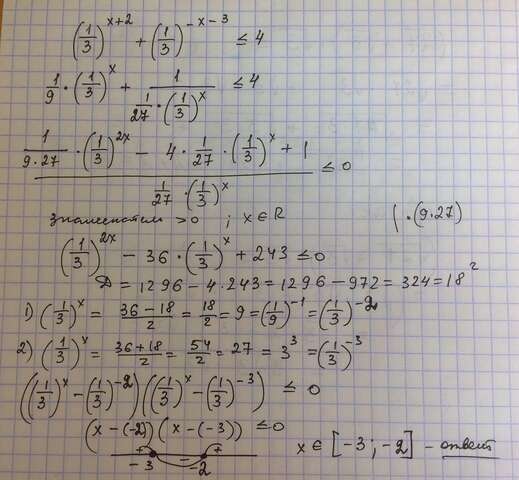 (1/3)^(x+2) + (1/3)^(-x-3) ≤ 4
1/9 · (1/3)^x + 1/(1/27 · (1/3)^x) ≤ 4
(1/(9·27) · (1/3)^(2x) - 4 · 1/27 · (1/3)^x + 1)/(1/27 · (1/3)^x) ≤ 0
знаменатель > 0 ; x ∈ R | · (9·27)
(1/3)^(2x) - 36 · (1/3)^x + 243 ≤ 0
D = 1296 - 4·243 = 1296 - 972 = 324 = 18^2
1) (1/3)^x = (36-18)/2 = 18/2 = 9 = (1/9)^(-1) = (1/3)^(-2)
2) (1/3)^x = (36+18)/2 = 54/2 = 27 = 3^3 = (1/3)^(-3)
((1/3)^x - (1/3)^(-2))((1/3)^x - (1/3)^(-3)) ≤ 0
(x-(-2))(x-(-3)) ≤ 0
+ - +
-3 -2
x ∈ [-3; -2] - ответ